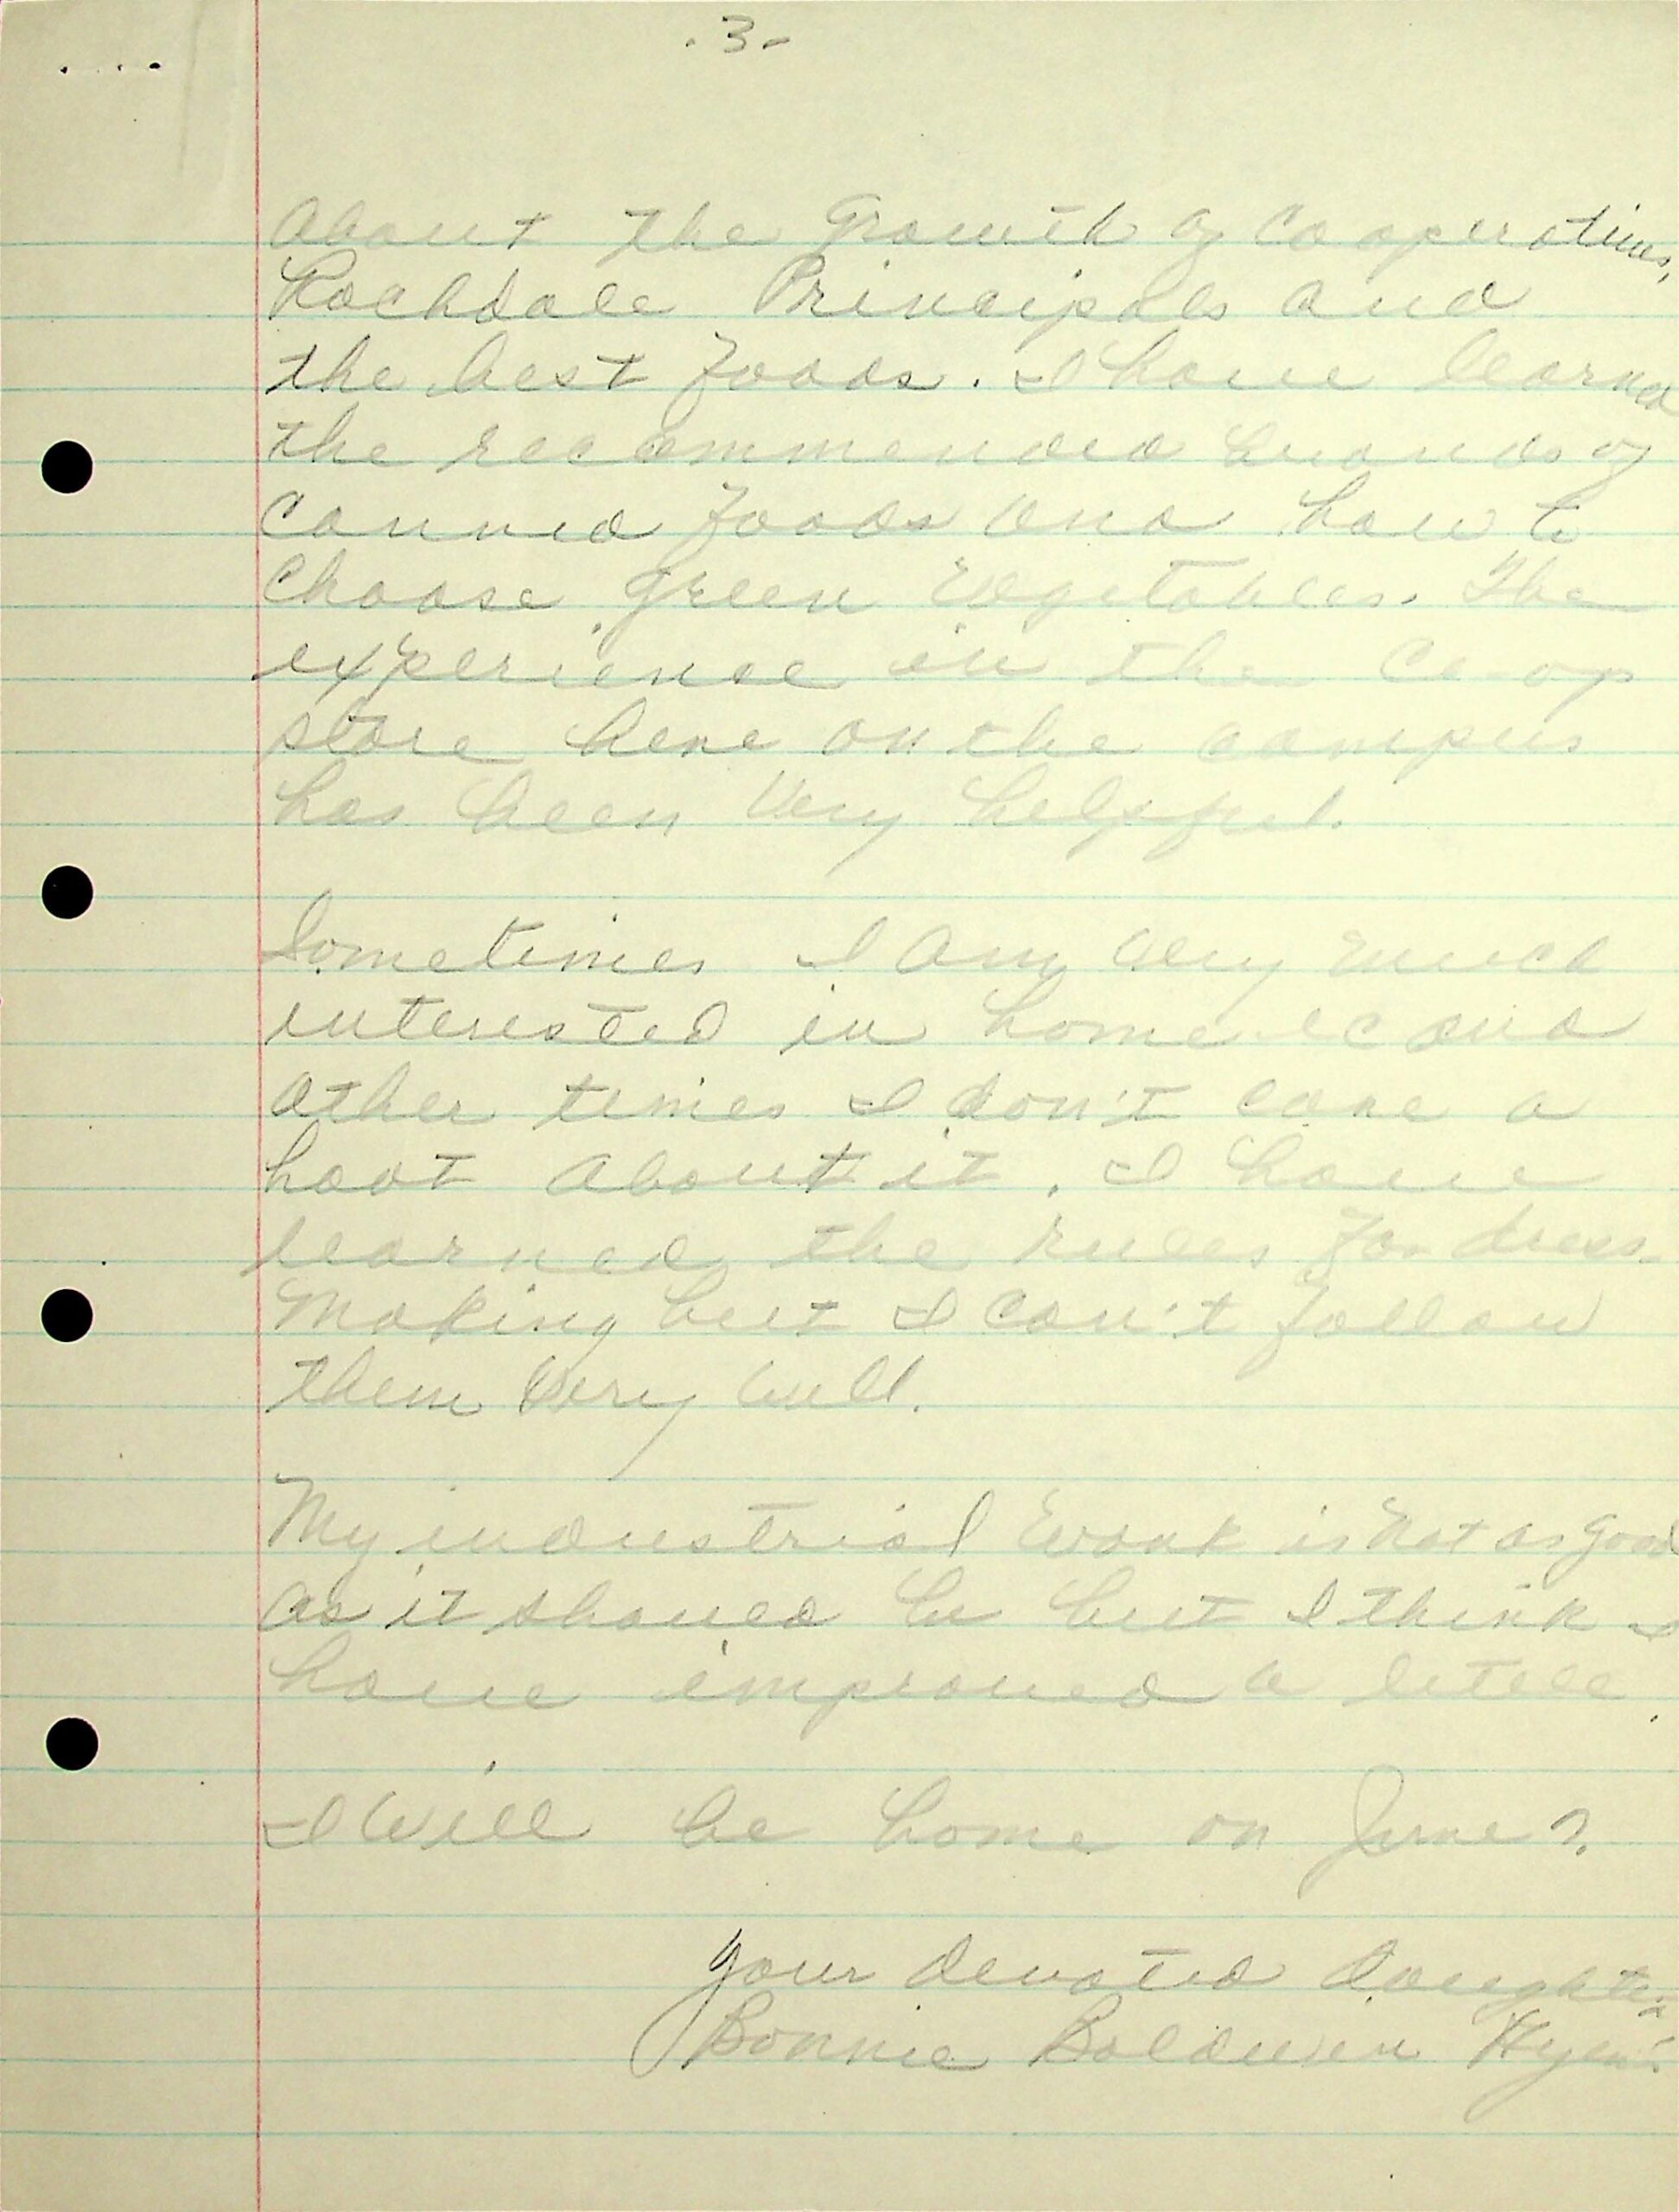 -3-
About the Growth of Cooperatives,
Rochdale Principals and
the best foods. I have learned
the recommended brands of
canned foods and how to
choose green vegetables. The
experience in the Co-op
store here on the campus
has been very helpful.
Sometimes I am very much
interested in home ec and
other times I don't care a
hoot about it. I have
learned the rules for dress-
making but I can't follow
them very well.
My industrial work is not as good
as it should be but I think I
have improved a little.
I will be home on June
Your devoted daughter
Bonnie Baldwin